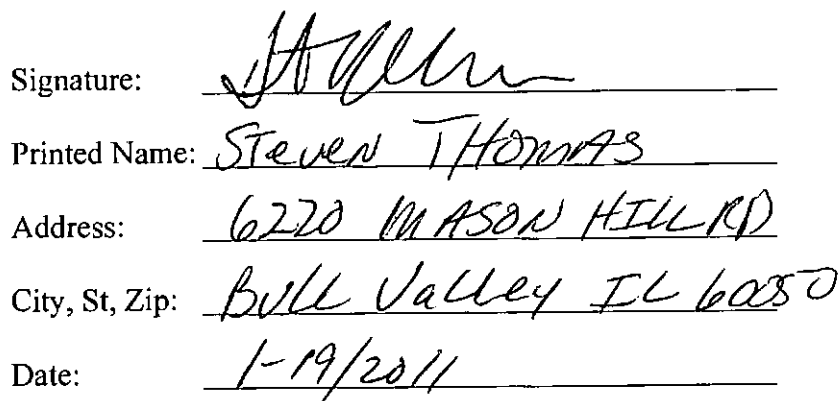 Signature:
Printed Name: Steven THOMAS
Address: 6220 MASON HILL RD
City, St, Zip: Bull Valley IL 60050
Date: 1-19/2011